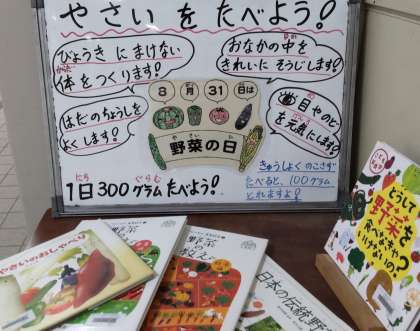 やさい を たべよう!
びょうき に まけない
体をつくります!
からだ
おなかの中を
きれいに そうじします!
8月31日は
がつ
にち
やさい
ひ
野菜の日
はだのちょうしを
よくします!
目やのどを
げんき
元気にします!
にち
ぐらむ
1日300グラムたべよう!
きゅうしょくのこさず
たべると、100グラム
とれますよ!
やさいのおしゃべり
野菜の
教え
日本の伝統野
どうして
野菜を
食べなきゃ
いけないの?